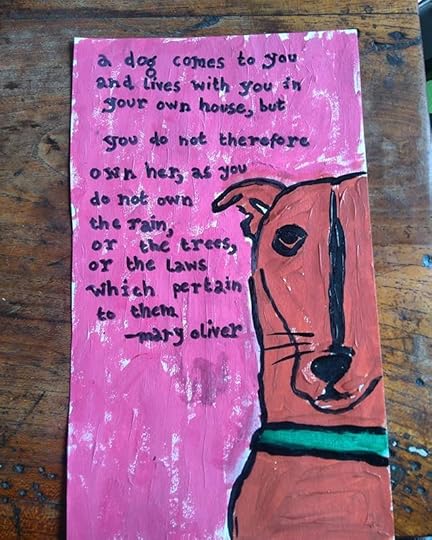 a dog comes to you
and lives with you in
your own house, but
you do not therefore
own her, as you
do not own
the rain,
or the trees,
or the laws
which pertain
to them
-mary oliver